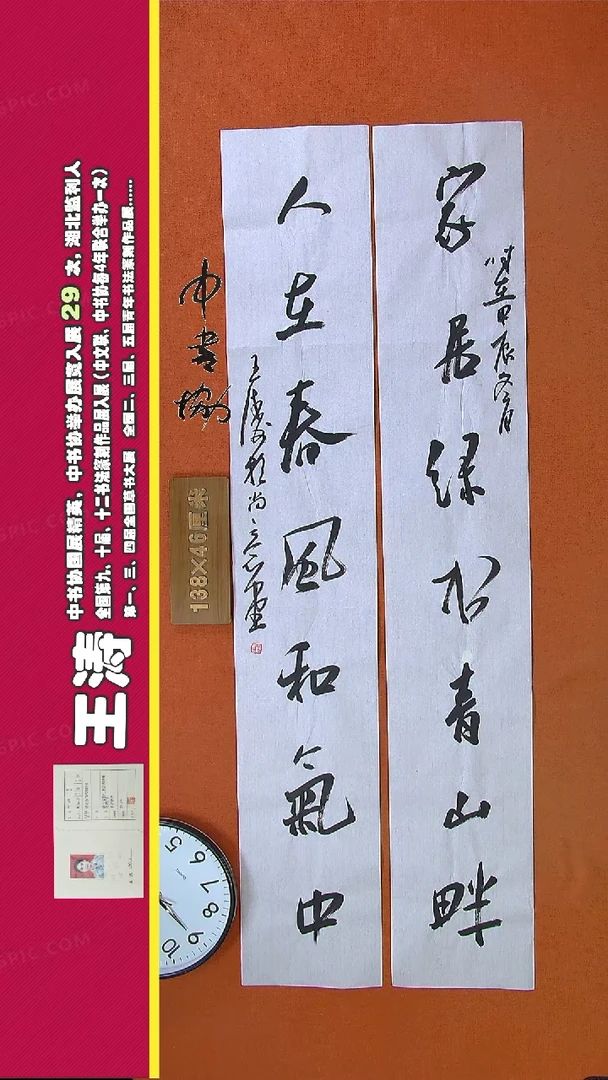 家居绿水青山畔
时在甲辰冬月
人在春風和氣中
王涛於尚意堂
中書協
138×46厘米
王涛
中书协国展精英，中书协举办展览入展 29 次，湖北监利人
全国第九、十届、十二书法篆刻作品展入展（中文联、中书协每4年联合举办一次）
第一、三、四届全国草书大展 全国二、三届、五届青年书法篆刻作品展……
5
6
7
8
9
10